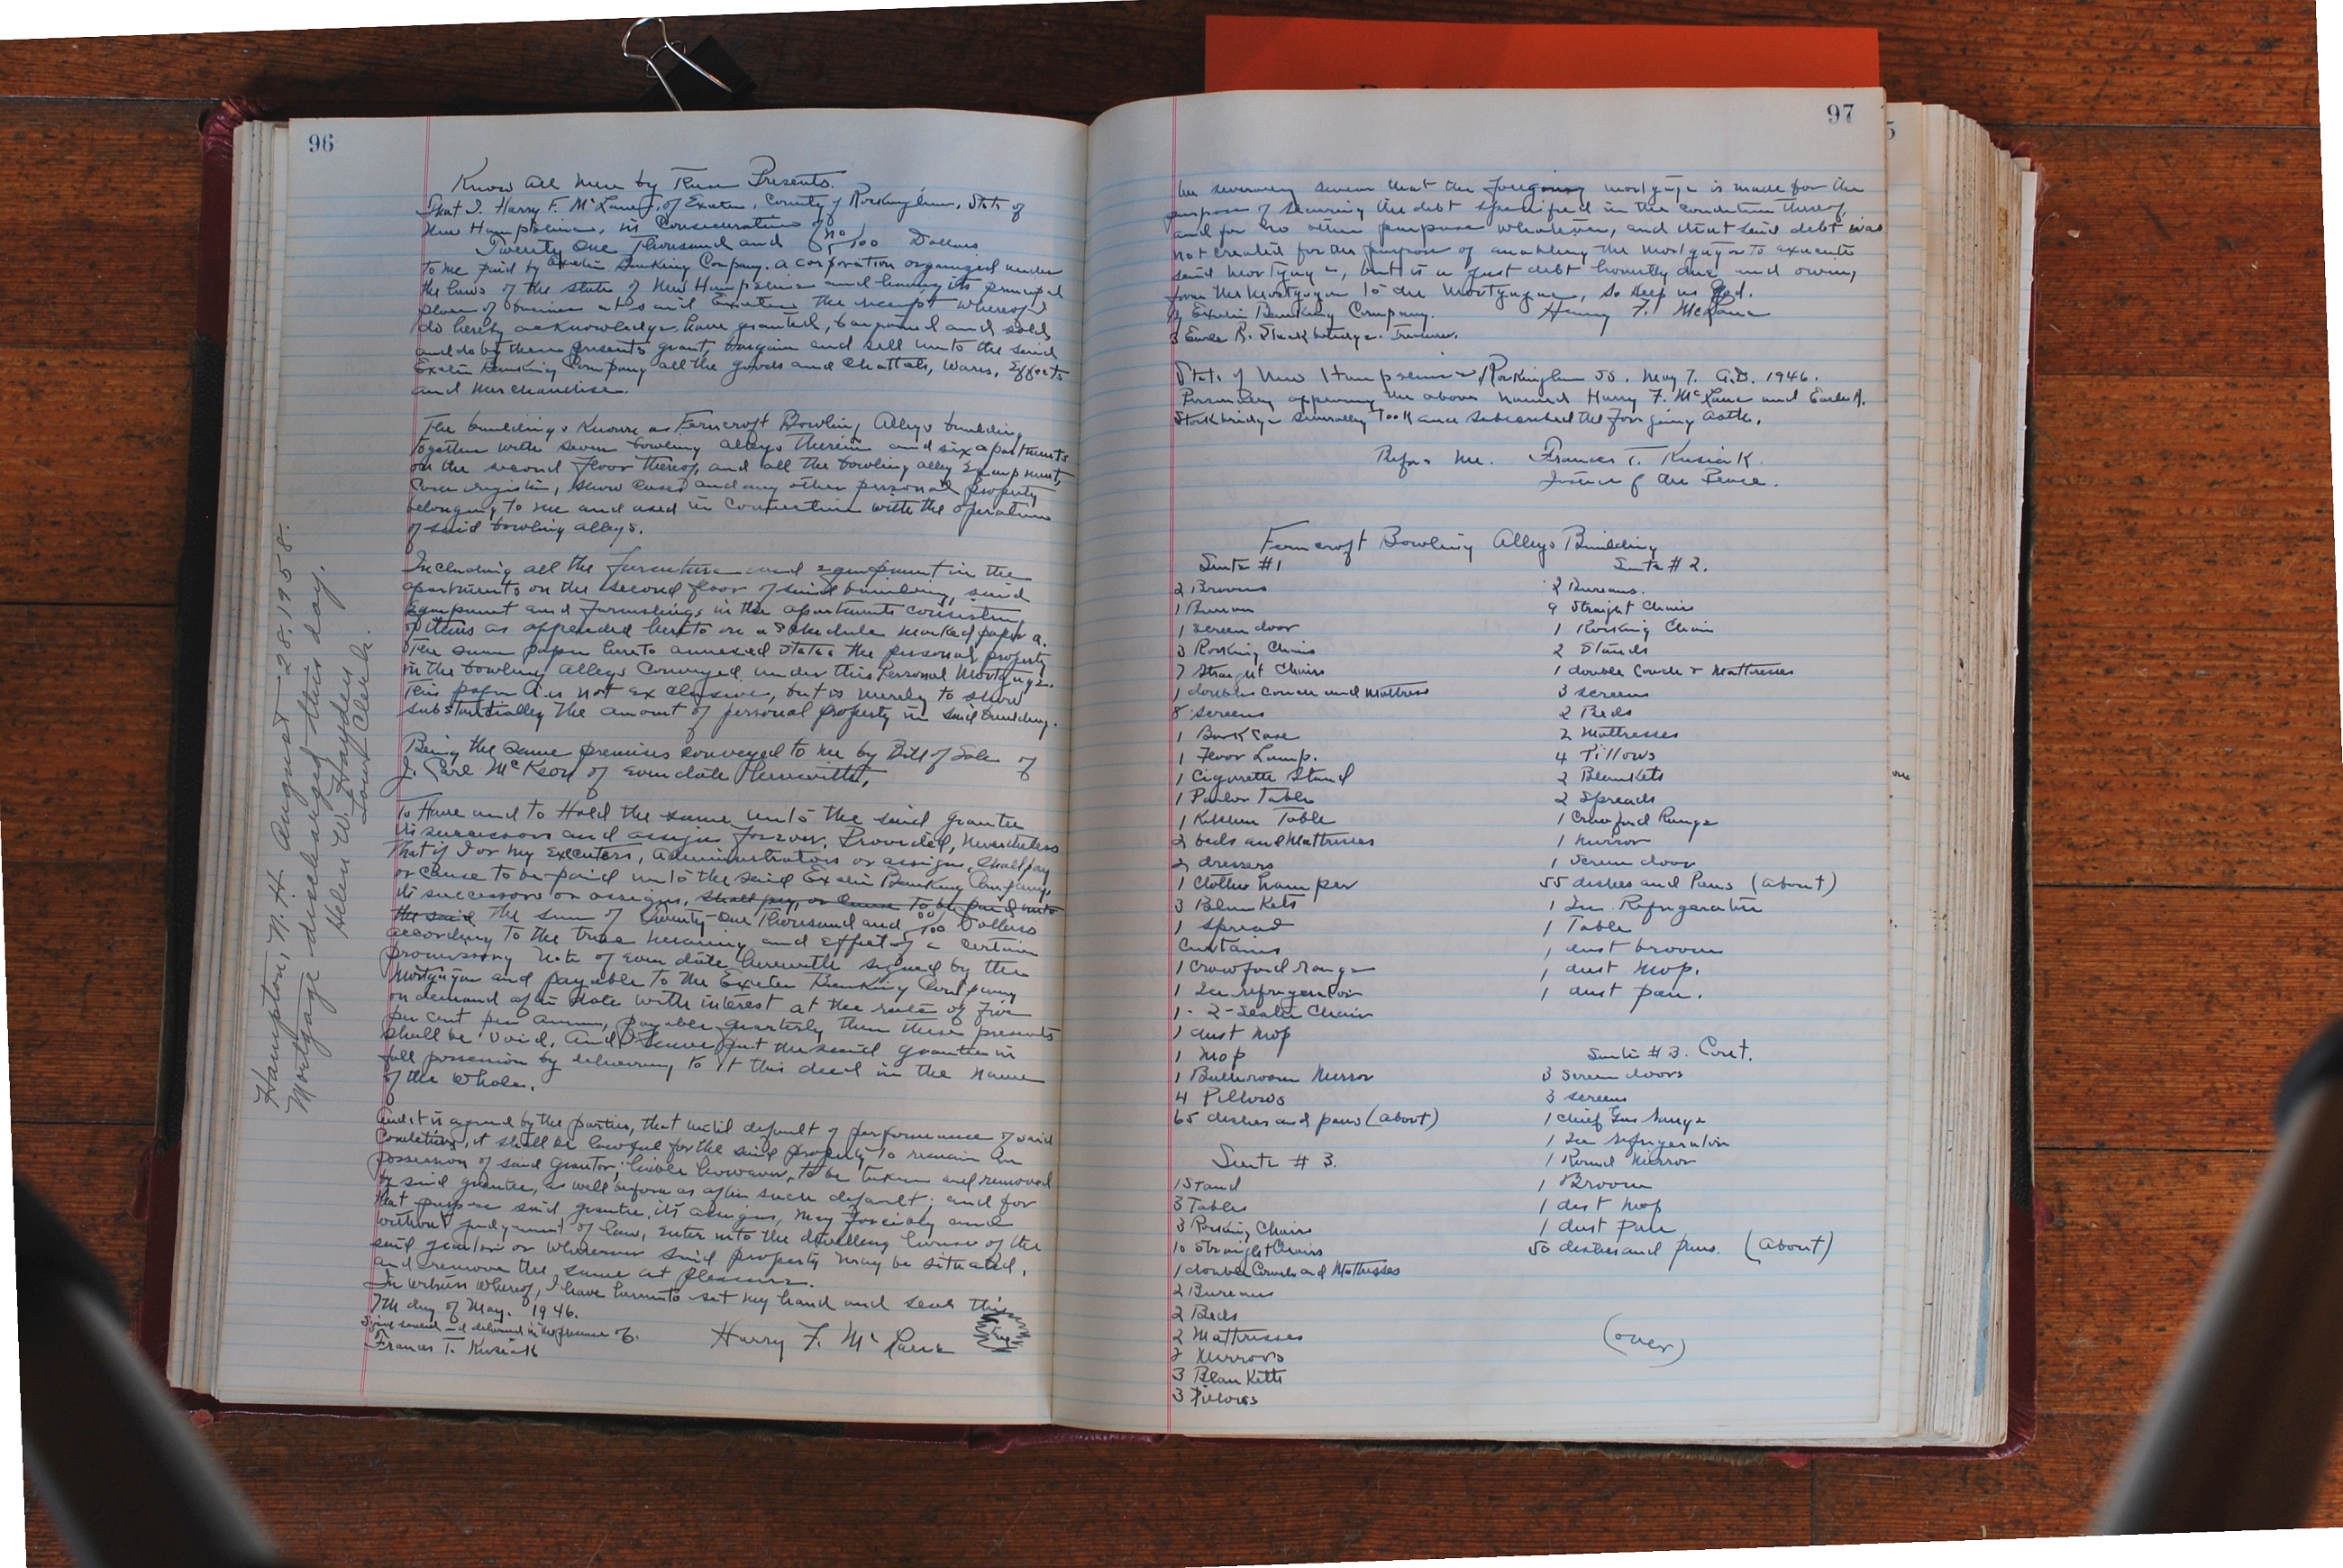 96
Know All Men by These Presents.
That I, Harry F. McLane, of Exeter, County of Rockingham, State of
New Hampshire, in Consideration of
Twenty One Thousand and no/100 Dollars
to me paid by Exeter Banking Company, a corporation organized under
the laws of the State of New Hampshire and having its principal
place of business at said Exeter the receipt whereof I
do hereby acknowledge, have granted, bargained and sold,
and do by these presents grant, bargain and sell unto the said
Exeter Banking Company all the goods and Chattels, Wares, Effects
and Merchandise.
The buildings Known as Ferncroft Bowling Alleys building
together with seven bowling alleys therein and six apartments
on the second floor thereof, and all the bowling alley Equipment,
Cash register, show cases and any other personal property
belonging to me and used in Connection with the operation
of said bowling alleys.
Including all the furniture and equipment in the
apartments on the second floor of said building, said
Equipment and furnishings in the apartments consisting
of items as appended hereto on a schedule marked paper A.
The same paper hereto annexed states the personal property
in the bowling alleys Conveyed under this Personal Mortgage.
This paper A is not exclusive, but is merely to show
substantially the amount of personal property in said building.
Being the same premises conveyed to me by Bill of Sale of
J. Carl McKeon of even date herewith,
To Have and to Hold the same unto the said grantee
its successors and assigns forever. Provided, Nevertheless
That if I or my Executors, administrators or assigns, shall pay
or cause to be paid unto the said Exeter Banking Company,
its successors or assigns, shall pay, or cause to be paid unto
the said the sum of Twenty-One Thousand and 00/100 Dollars
according to the true meaning and effect of a certain
promissory note of even date herewith signed by the
Mortgagor and payable to the Exeter Banking Company
on demand after date with interest at the rate of five
per cent per annum, payable quarterly then these presents
shall be void. And I have put the said grantee in
full possession by delivering to it this deed in the name
of the Whole.
And it is agreed by the parties, that until default of performance of said
Condition, it shall be lawful for the said property to remain in
possession of said grantor; liable however, to be taken and removed
by said grantee, as well before as after such default; and for
that purpose said grantee, its assigns, may forcibly and
without judgment of law, enter into the dwelling house of the
said grantor or wherever said property may be situated,
and remove the same at pleasure.
In witness whereof, I have hereunto set my hand and seal this
7th day of May. 1946.
Signed sealed and delivered in the presence of.
Francis T. Kusiak Harry F. McLane
Hampton, N.H. August 28, 1958.
Mortgage discharged this day.
Helen W. Hayden
Town Clerk.
97
We severally swear that the foregoing mortgage is made for the
purpose of securing the debt specified in the condition thereof,
and for no other purpose whatever, and that said debt was
not created for the purpose of enabling the mortgagor to execute
said mortgage, but is a just debt honestly due and owing
from the mortgagor to the mortgagee, so help us God.
By Exeter Banking Company. Harry F. McLane
Earle R. Stockbridge. Treasurer.
State of New Hampshire, Rockingham SS. May 7. A.D. 1946.
Personally appearing the above named Harry F. McLane and Earle R.
Stockbridge severally took and subscribed the foregoing oath.
Before Me. Francis T. Kusiak.
Justice of the Peace.
Ferncroft Bowling Alleys Building
Suite #1
2 Brooms
1 Bureau
1 screen door
3 Rocking Chairs
7 Straight Chairs
1 double couch and mattress
8 screens
1 Book Case
1 Floor Lamp.
1 Cigarette Stand
1 Parlor Table
1 Kitchen Table
2 beds and Mattresses
2 dressers
1 Clothes hamper
3 Blankets
1 spread
Curtains
1 Crawford range
1 Ice refrigerator
1 - 2-Seater Chair
1 dust Mop
1 Mop
1 Bathroom Mirror
4 Pillows
65 dishes and pans (about)
Suite #2.
2 Bureaus.
9 Straight Chairs
1 Rocking Chair
2 Stands
1 double Couch & Mattresses
3 screens
2 Beds
2 Mattresses
4 Pillows
2 Blankets
2 Spreads
1 Crawford Range
1 Mirror
1 Screen door
55 dishes and Pans (about)
1 Ice Refrigerator
1 Table
1 dust broom
1 dust Mop.
1 dust pan.
Suite # 3.
1 Stand
3 Tables
3 Rocking Chairs
10 Straight Chairs
1 double Couch and Mattresses
2 Bureaus
2 Beds
2 Mattresses
2 Mirrors
3 Blanketts
3 Pillows
Suite # 3. Cont.
3 Screen doors
3 screens
1 Chief Gas Range
1 Ice refrigerator
1 Round Mirror
1 Broom
1 dust Mop
1 dust pan
50 dishes and pans. (about)
(over)